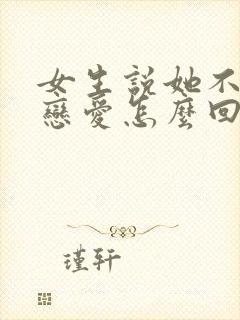 女生説她不
戀愛怎麼回
瑾轩